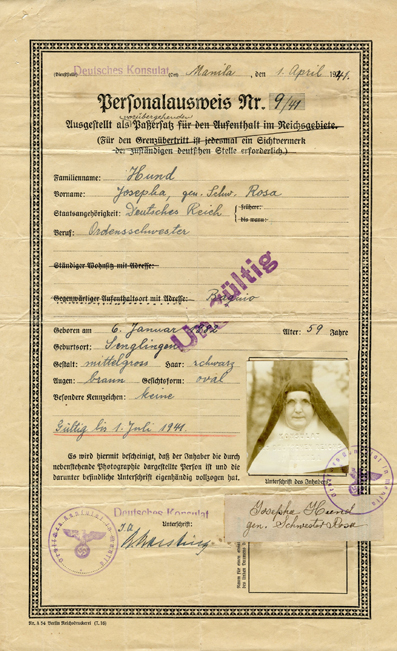 (Dienststelle) Deutsches Konsulat (Ort) Manila, den 1. April 1941.
Personalausweis Nr. 9/41
vorübergehender
Ausgestellt als Paßersatz für den Aufenthalt im Reichsgebiete.
(Für den Grenzübertritt ist jedesmal ein Sichtvermerk
der zuständigen deutschen Stelle erforderlich.)
Familienname: Hund
Vorname: Josepha, gen. Schw. Rosa
Staatsangehörigkeit: Deutsches Reich { frühere:
bis wann:
Beruf: Ordensschwester
Ständiger Wohnsitz mit Adresse:
Gegenwärtiger Aufenthaltsort mit Adresse: Baguio
Ungültig
Geboren am 6. Januar 1882 Alter: 59 Jahre
Geburtsort:
Gestalt: mittelgross Haar: schwarz
Augen: braun Gesichtsform: oval
Besondere Kennzeichen: keine
Gültig bis 1. Juli 1941.
Es wird hiermit bescheinigt, daß der Inhaber die durch
nebenstehende Photographie dargestellte Person ist und die
darunter befindliche Unterschrift eigenhändig vollzogen hat.
Unterschrift des Inhabers
Josepha Hund
gen. Schwester Rosa
Deutsches Konsulat
Unterschrift:
I.A.
Deutsches Konsulat in Manila
Nr. § 54 Berlin Reichsdruckerei